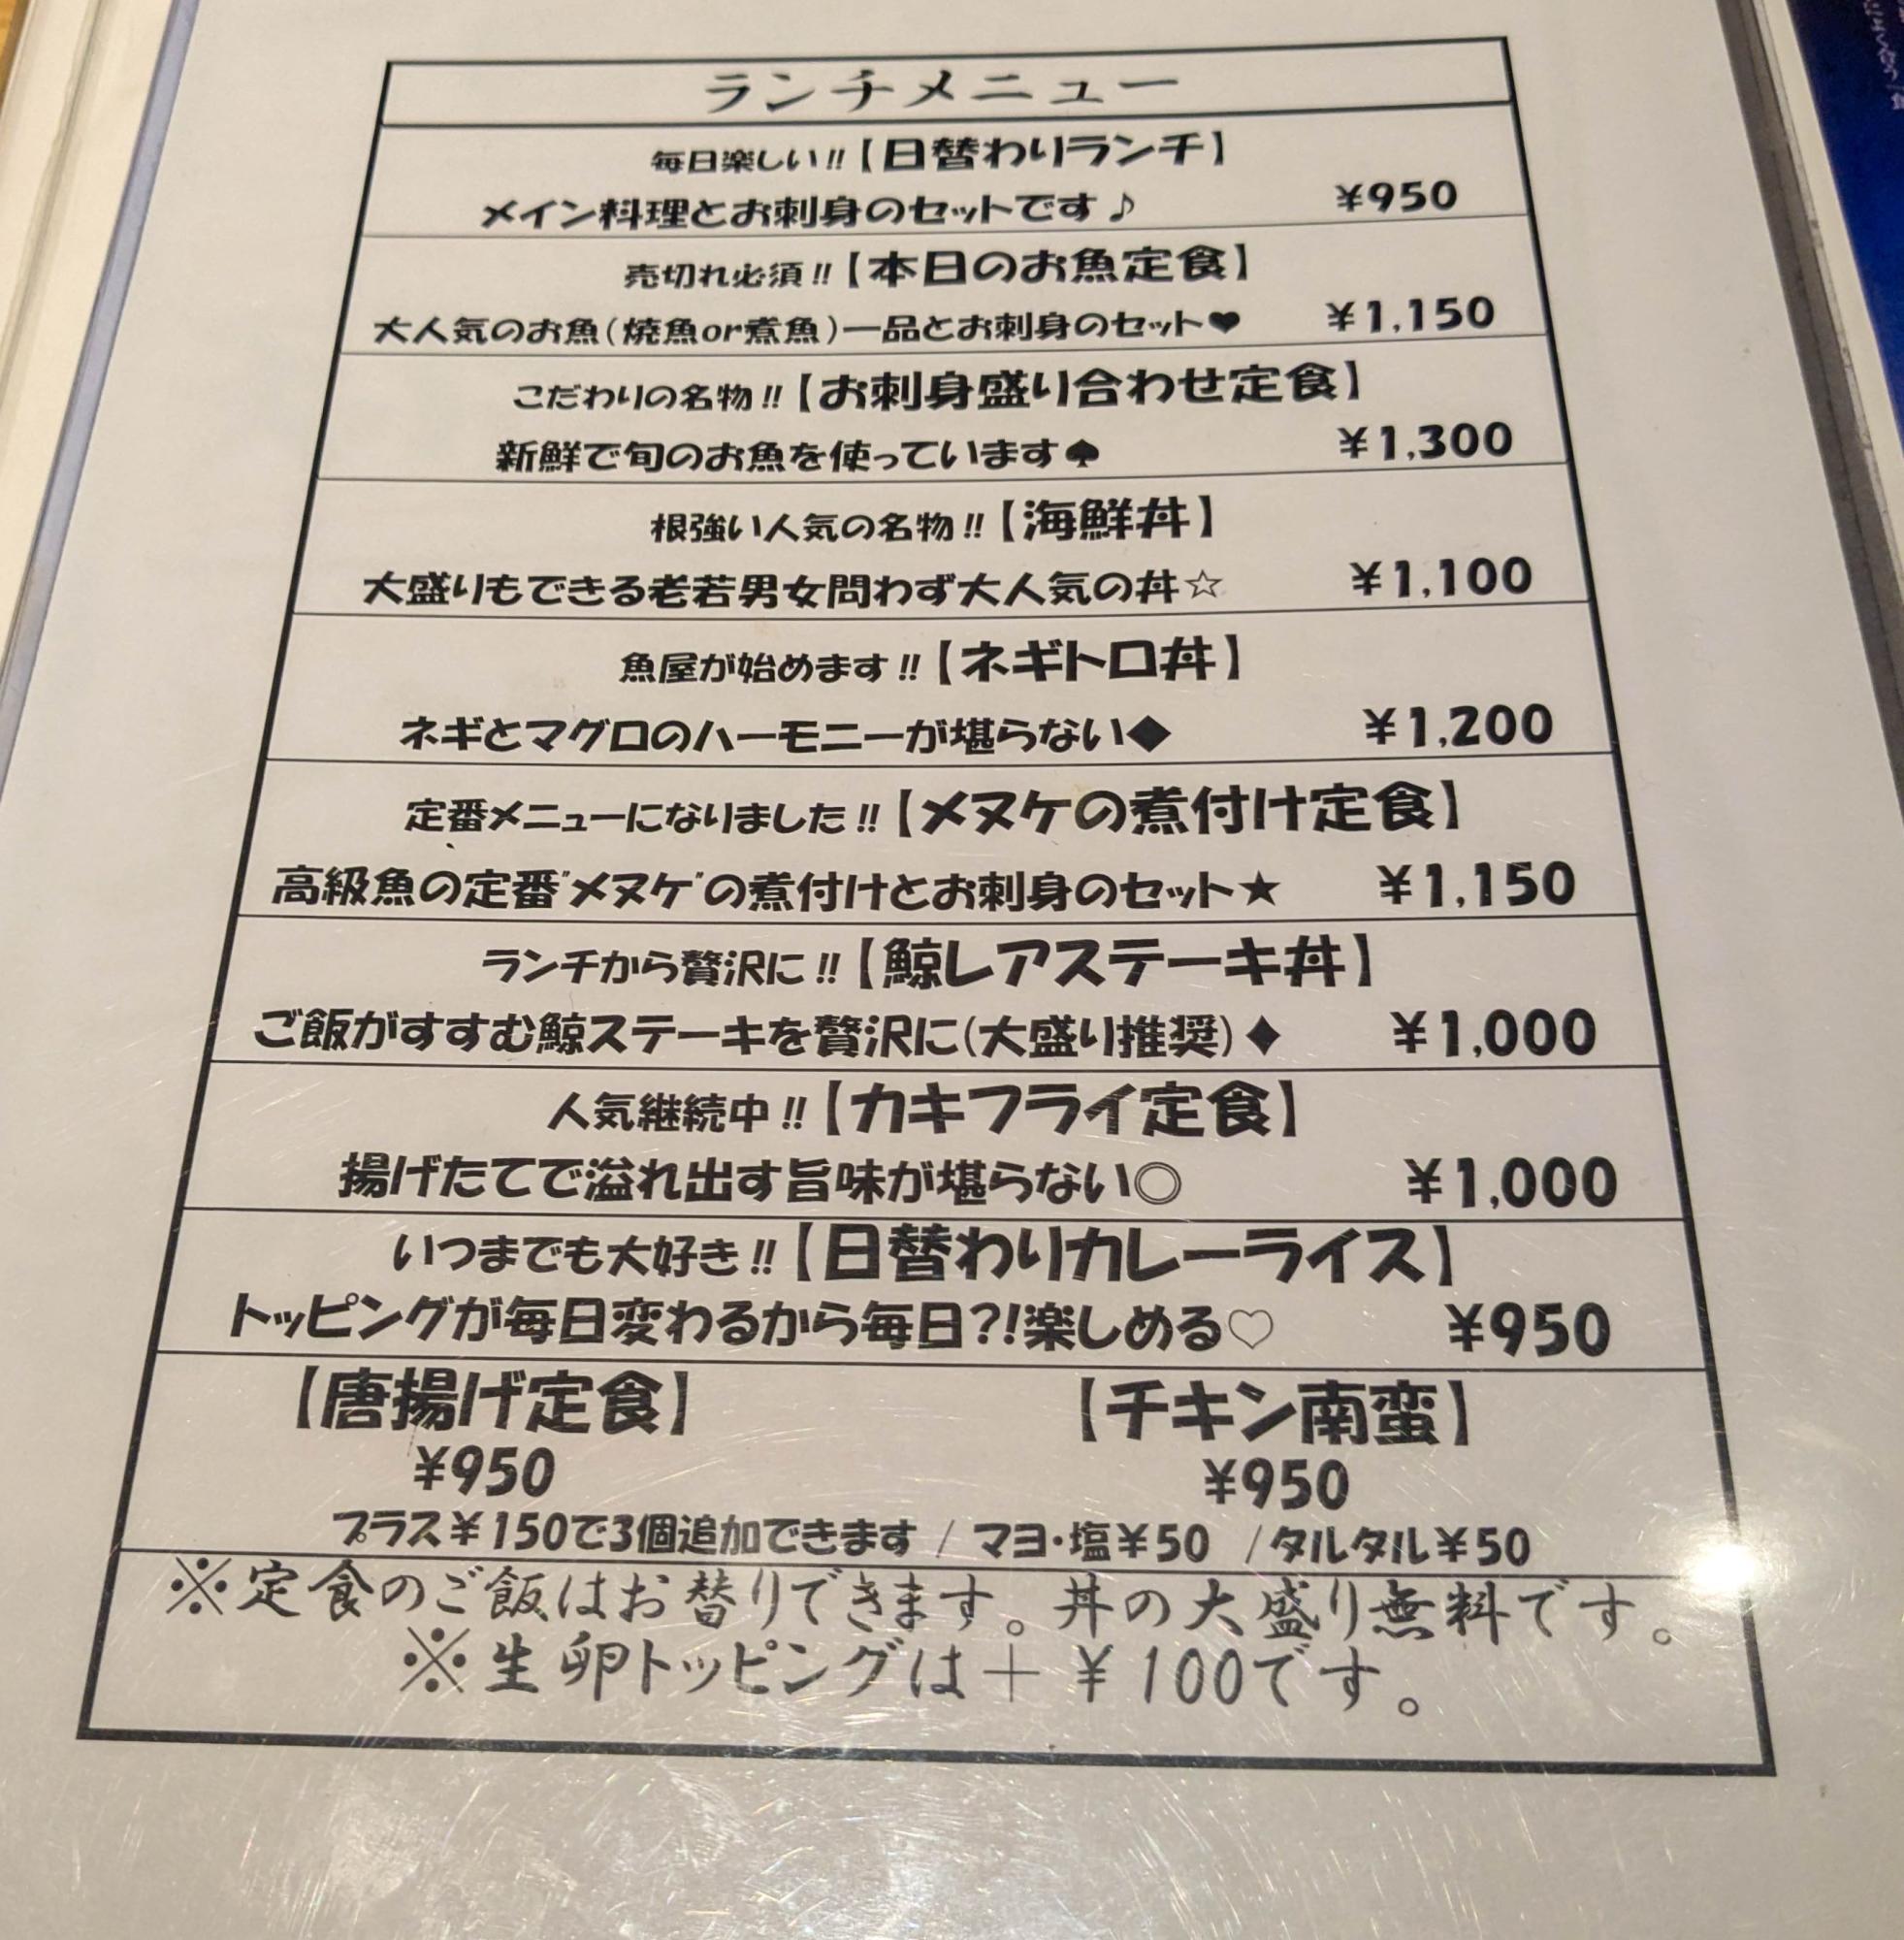 ランチメニュー
毎日楽しい!!【日替わりランチ】
メイン料理とお刺身のセットです♪ ¥950
売切れ必須!!【本日のお魚定食】
大人気のお魚(焼魚or煮魚)一品とお刺身のセット♥ ¥1,150
こだわりの名物!!【お刺身盛り合わせ定食】
新鮮で旬のお魚を使っています♠ ¥1,300
根強い人気の名物!!【海鮮丼】
大盛りもできる老若男女問わず大人気の丼☆ ¥1,100
魚屋が始めます!!【ネギトロ丼】
ネギとマグロのハーモニーが堪らない◆ ¥1,200
定番メニューになりました!!【メヌケの煮付け定食】
高級魚の定番"メヌケ"の煮付けとお刺身のセット★ ¥1,150
ランチから贅沢に!!【鯨レアステーキ丼】
ご飯がすすむ鯨ステーキを贅沢に(大盛り推奨)♦ ¥1,000
人気継続中!!【カキフライ定食】
揚げたてで溢れ出す旨味が堪らない◎ ¥1,000
いつまでも大好き!!【日替わりカレーライス】
トッピングが毎日変わるから毎日?!楽しめる♡ ¥950
【唐揚げ定食】 【チキン南蛮】
¥950 ¥950
プラス¥150で3個追加できます / マヨ・塩¥50 /タルタル¥50
※定食のご飯はお替りできます。丼の大盛り無料です。
※生卵トッピングは＋¥100です。